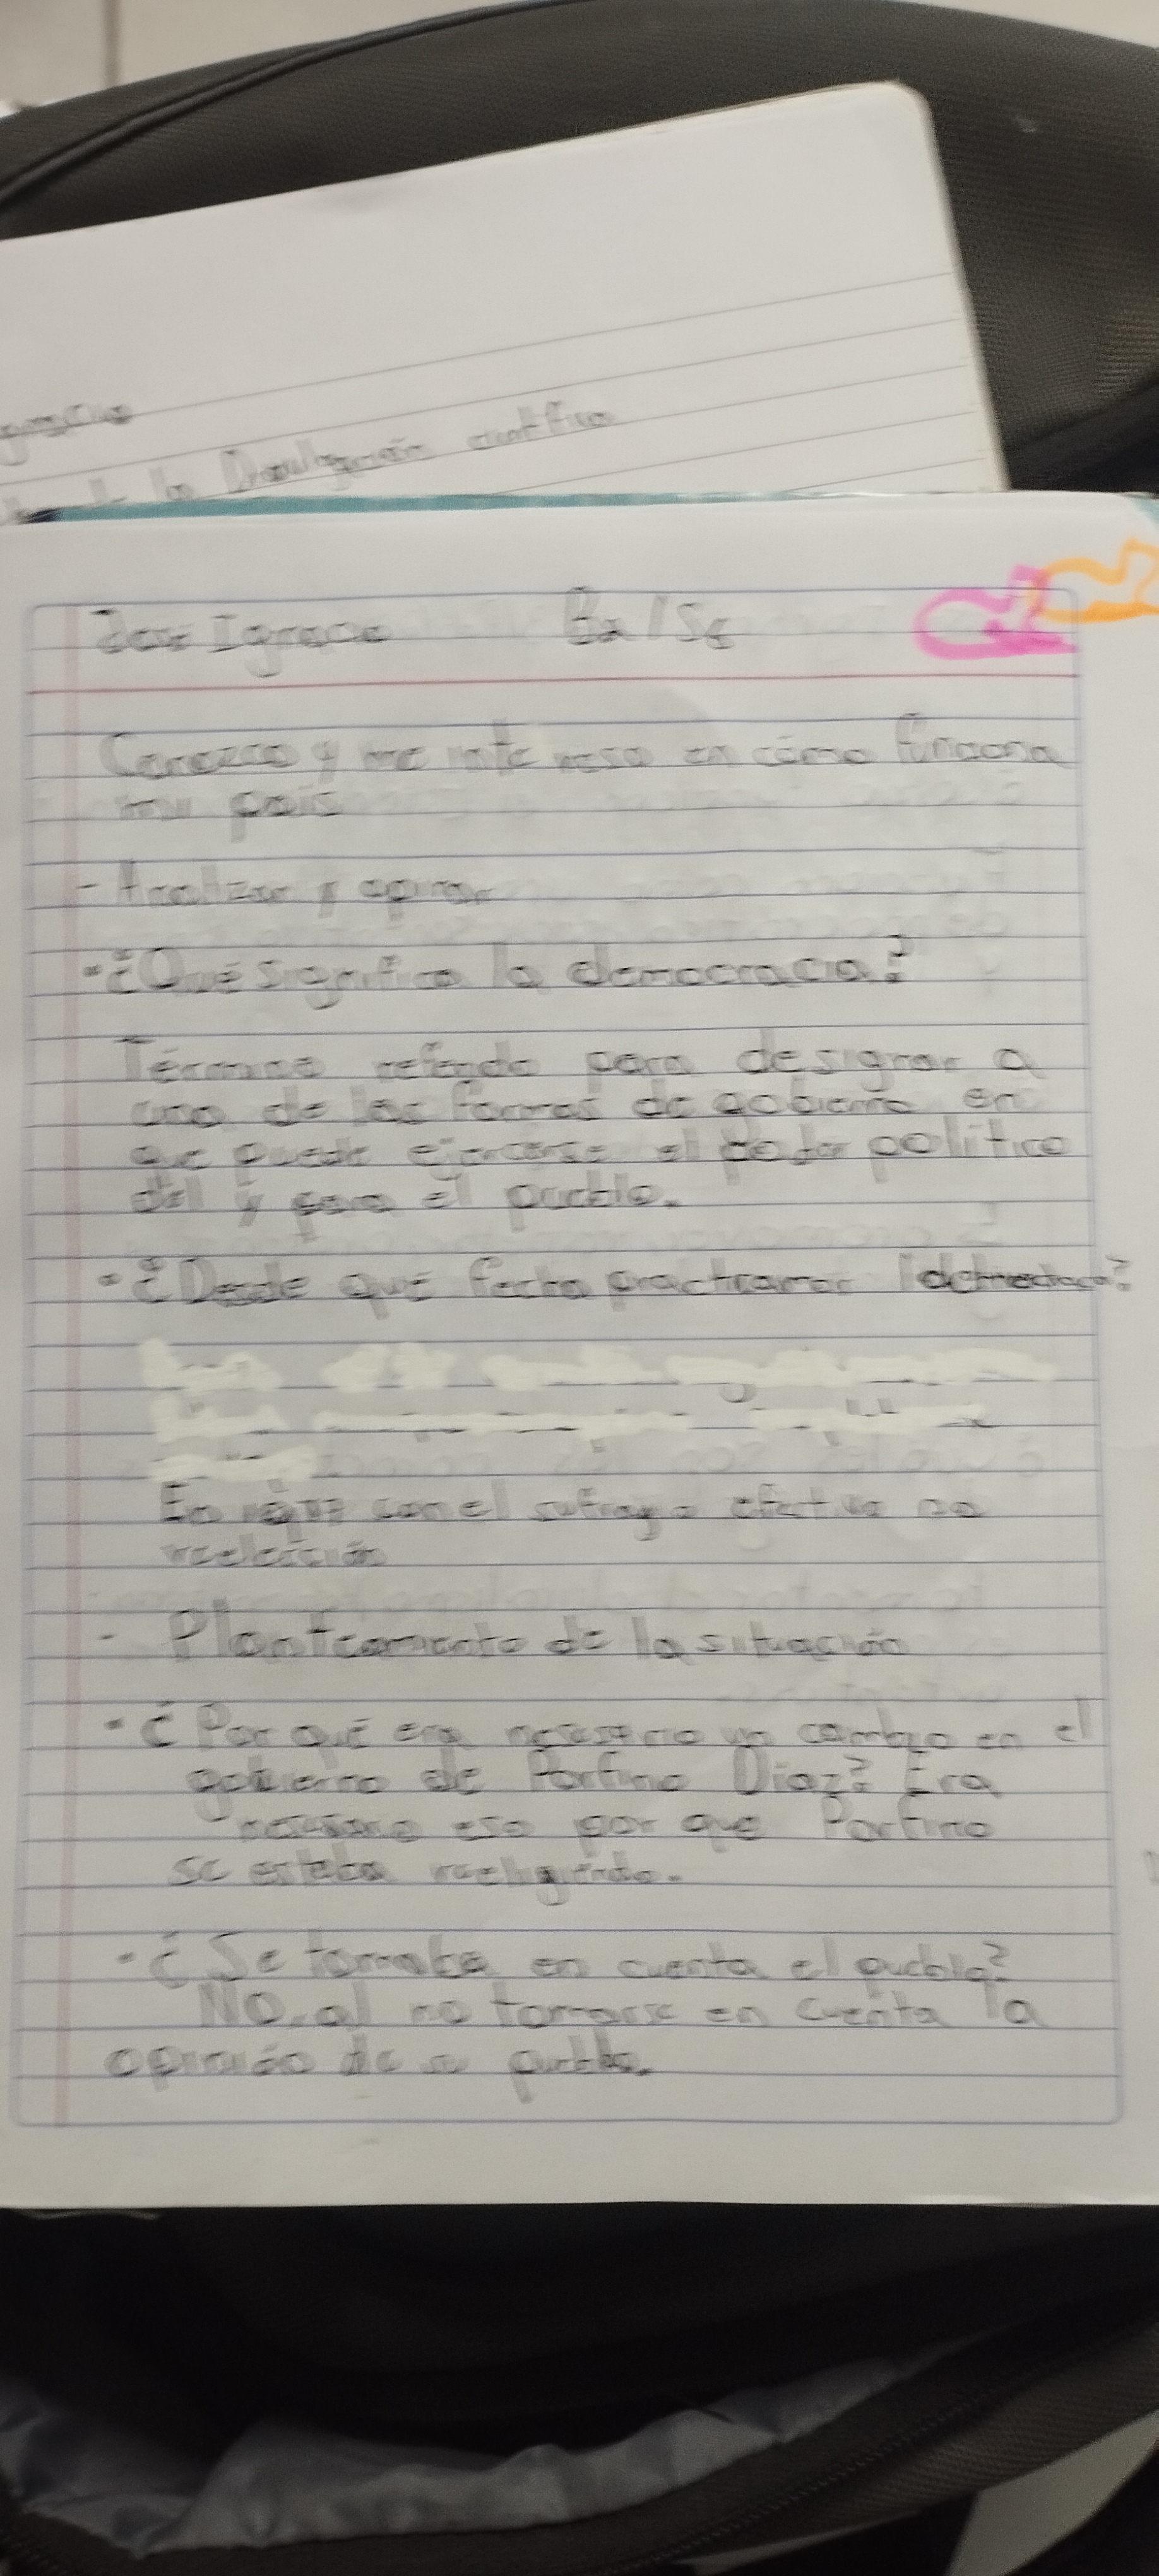 la Divulgación científica
José Ignacio
Conozco y me intereso en cómo funciona
mi país
- Analizar y opinar
• ¿Qué significa la democracia?
Término referido para designar a
una de las formas de gobierno en
que puede ejercerse el poder político
del y para el pueblo.
• ¿Desde qué fecha practicamos
En con el sufragio efectivo no
reelección
- Planteamiento de la situación
• ¿Por qué era necesario un cambio en el
gobierno de Porfirio Díaz? Era
necesario eso por que Porfirio
se estaba reeligiendo.
• ¿Se tomaba en cuenta el pueblo?
No, al no tomarse en cuenta la
opinión de su pueblo.